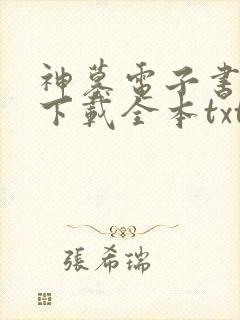 神墓電子書
下載全本txt
張希瑞